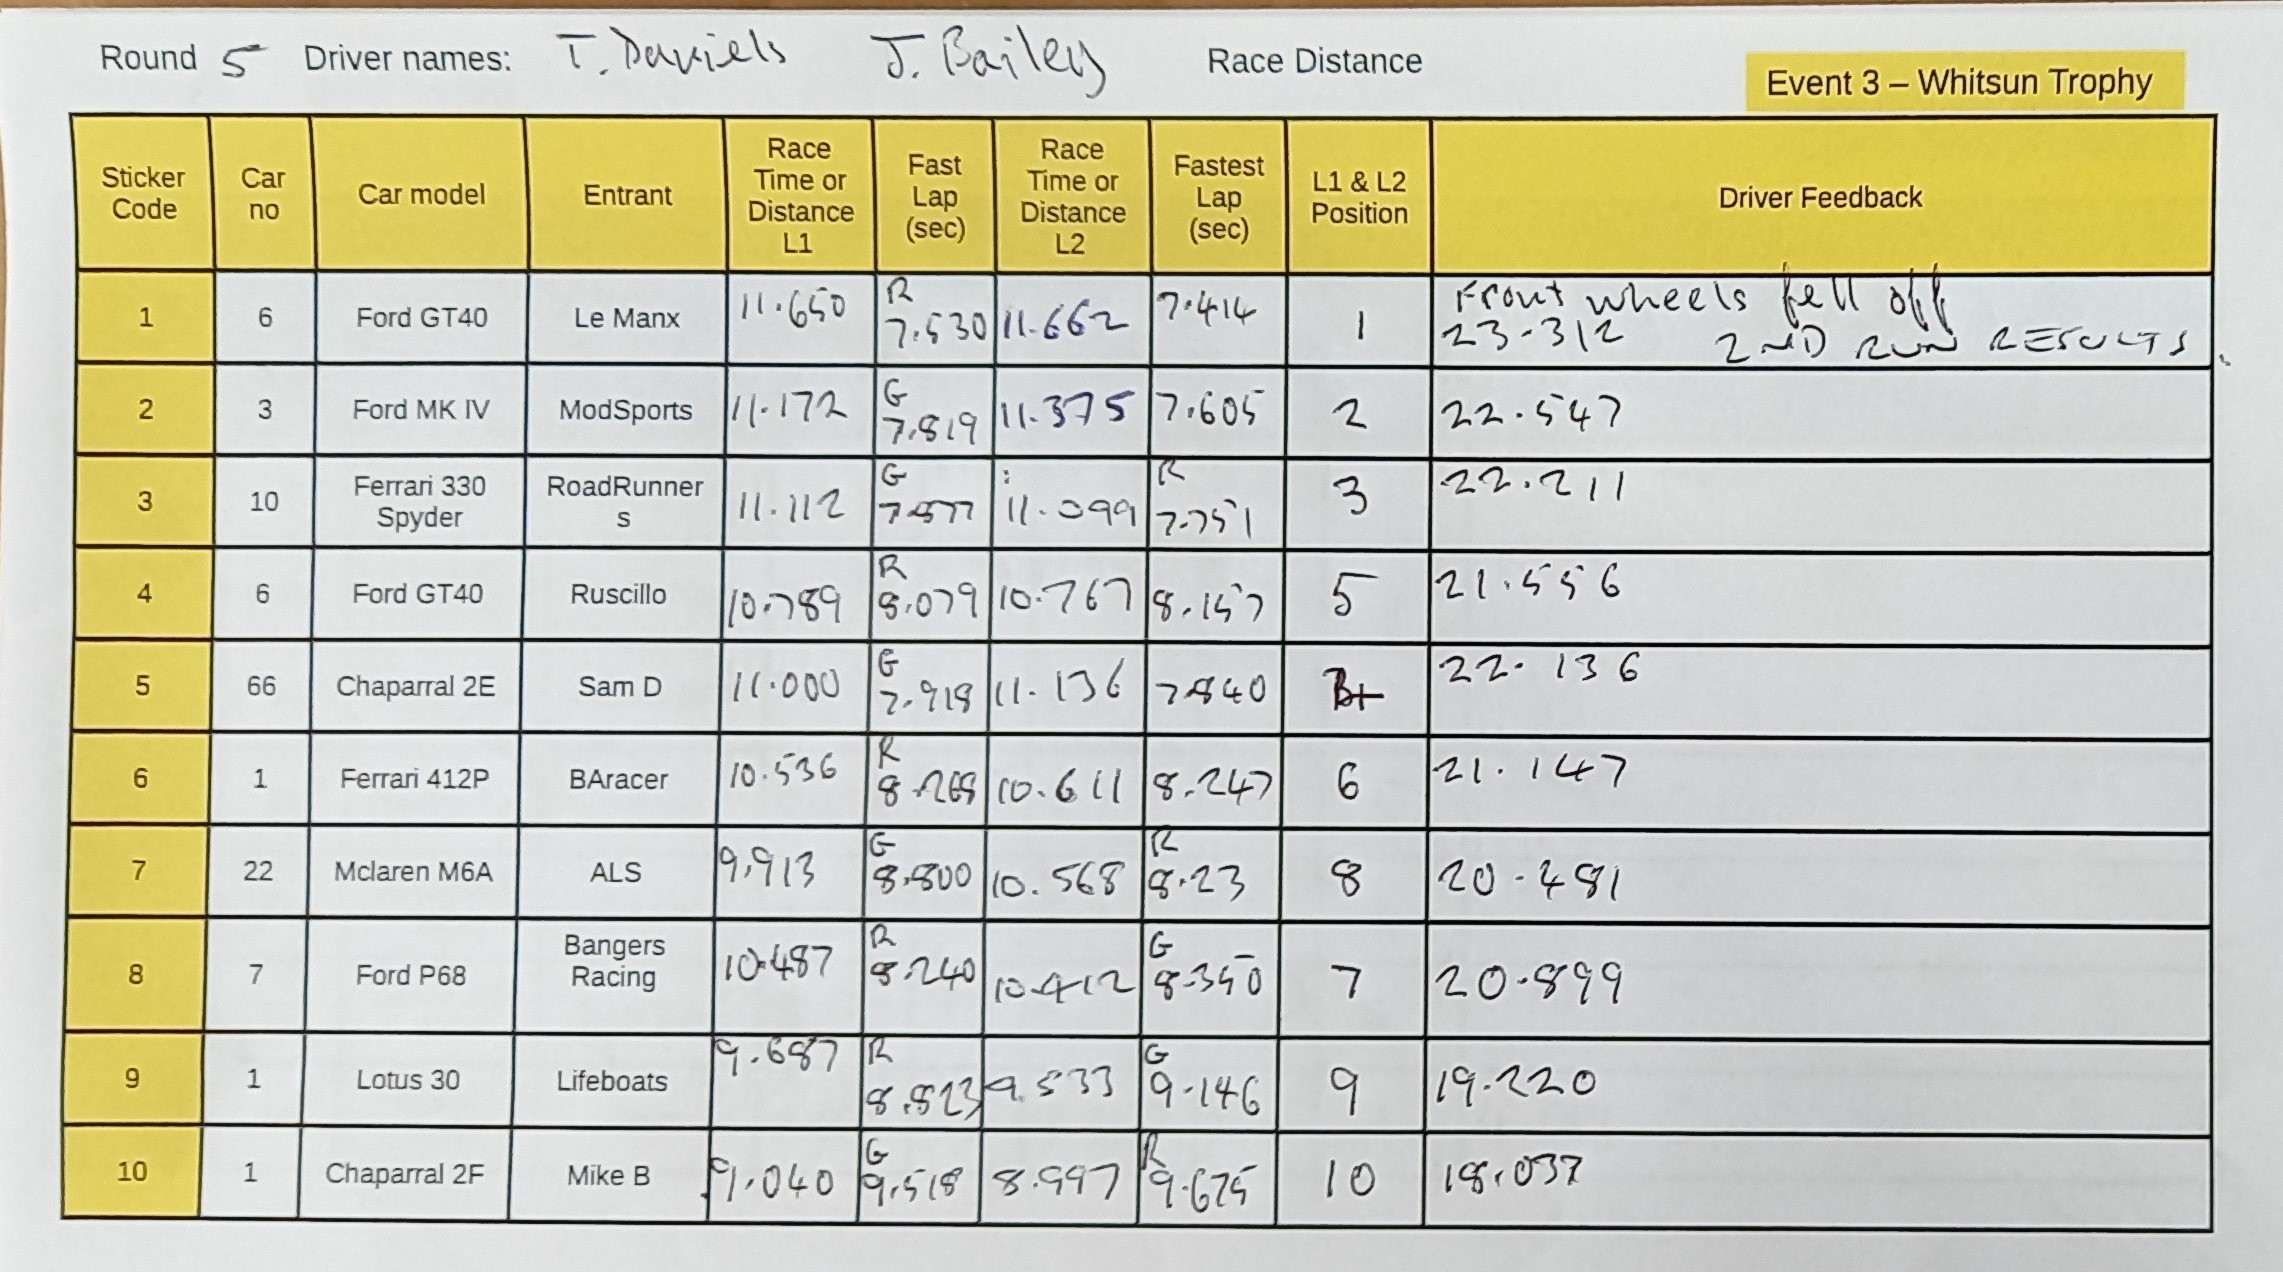 Round 5 Driver names: T. Daniels J. Bailey Race Distance
Event 3 – Whitsun Trophy
Sticker Code Car no Car model Entrant Race Time or Distance L1 Fast Lap (sec) Race Time or Distance L2 Fastest Lap (sec) L1 & L2 Position Driver Feedback
1 6 Ford GT40 Le Manx 11.650 R 7.530 11.662 7.414 1 Front wheels fell off
23.312 2ND RUN RESULTS.
2 3 Ford MK IV ModSports 11.172 G 7.819 11.375 7.605 2 22.547
3 10 Ferrari 330 Spyder RoadRunners 11.112 G 11.099 R 7.751 3 22.211
4 6 Ford GT40 Ruscillo 10.789 R 8.079 10.767 8.157 5 21.556
5 66 Chaparral 2E Sam D 11.000 G 7.918 11.136 7.840 22.136
6 1 Ferrari 412P BAracer 10.536 R 8.269 10.611 8.247 6 21.147
7 22 Mclaren M6A ALS 9.913 G 8.800 10.568 R 8.23 8 20.481
8 7 Ford P68 Bangers Racing 10.487 R 8.240 10.412 G 8.350 7 20.899
9 1 Lotus 30 Lifeboats 9.687 R 8.823 9.533 G 9.146 9 19.220
10 1 Chaparral 2F Mike B 9.040 G 9.518 8.997 R 9.675 10 18.037